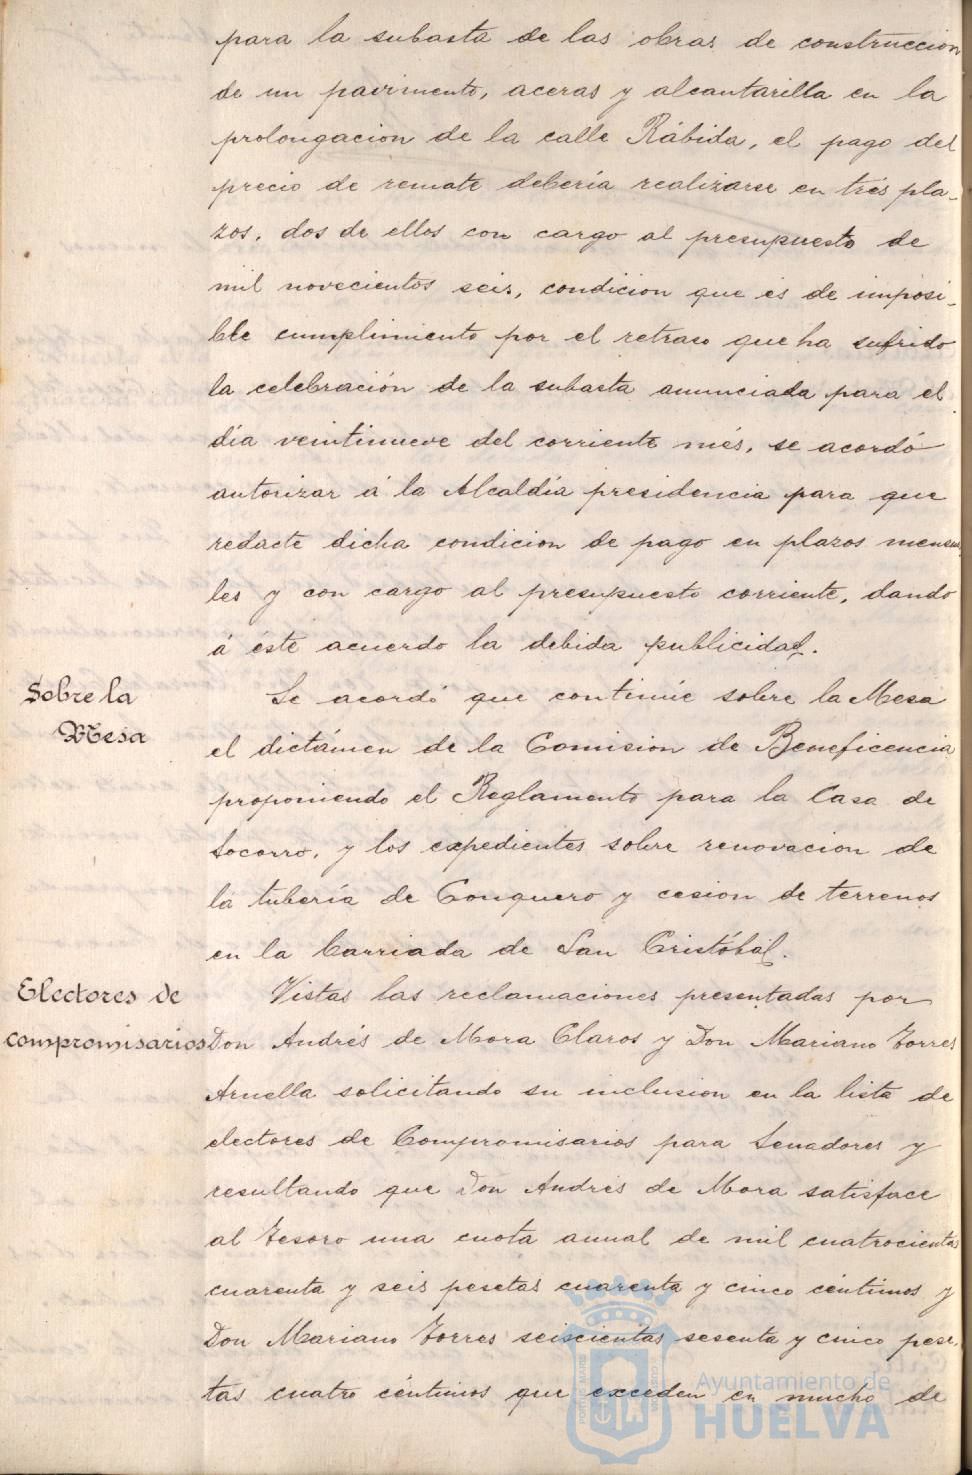 para la subasta de las obras de construccion
de un pavimento, aceras y alcantarilla en la
prolongacion de la calle Rábida, el pago del
precio de remate debería realizarse en trés pla-
zos, dos de ellos con cargo al presupuesto de
mil novecientos seis, condicion que és de imposi-
ble cumplimiento por el retraso que ha sufrido
la celebración de la subasta anunciada para el
día veintinueve del corriente més, se acordó
autorizar á la Alcaldía presidencia para que
redacte dicha condicion de pago en plazos mensua
les y con cargo al presupuesto corriente, dando
á éste acuerdo la debida publicidad.
Sobre la
Mesa
Se acordó que continúe sobre la Mesa
el dictámen de la Comision de Beneficencia
proponiendo el Reglamento para la Casa de
Socorro, y los expedientes sobre renovacion de
la tubería de Conquero y cesion de terrenos
en la barriada de San Cristóbal.
Electores de
compromisarios
Vistas las reclamaciones presentadas por
Don Andrés de Mora Claros y Don Mariano Torres
Aruella solicitando su inclusion en la lista de
electores de Compromisarios para Senadores y
resultando que Don Andrés de Mora satisface
al Tesoro una cuota anual de mil cuatrocientas
cuarenta y seis pesetas cuarenta y cinco céntimos y
Don Mariano Torres seiscientas sesenta y cinco pese-
tas cuatro céntimos que exceden en mucho de
Ayuntamiento de
HUELVA